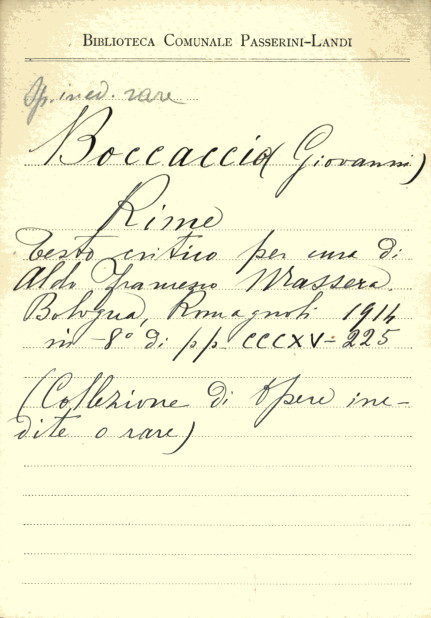 BIBLIOTECA COMUNALE PASSERINI-LANDI
Op. ined. rare
Boccaccio (Giovanni)
Rime
Testo critico per cura di
Aldo Francesco Massera.
Bologna, Romagnoli 1914
in-8° di pp. CCCXV-225
(Collezione di Opere ine-
dite o rare)